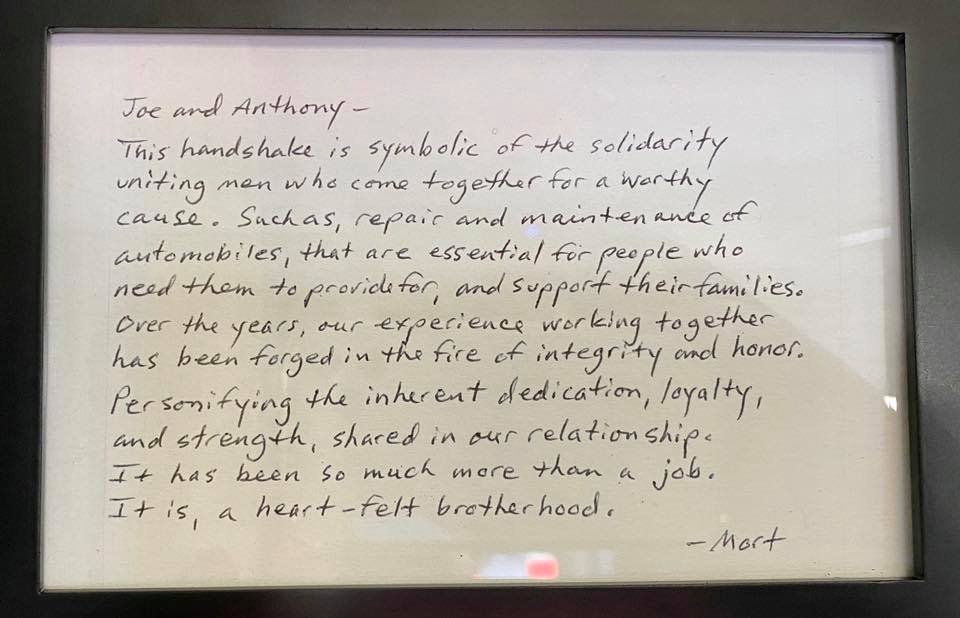 Joe and Anthony –
This handshake is symbolic of the solidarity
uniting men who come together for a worthy
cause. Such as, repair and maintenance of
automobiles, that are essential for people who
need them to provide for, and support their families.
Over the years, our experience working together
has been forged in the fire of integrity and honor.
Personifying the inherent dedication, loyalty,
and strength, shared in our relationship.
It has been so much more than a job.
It is, a heart-felt brotherhood.
– Mort